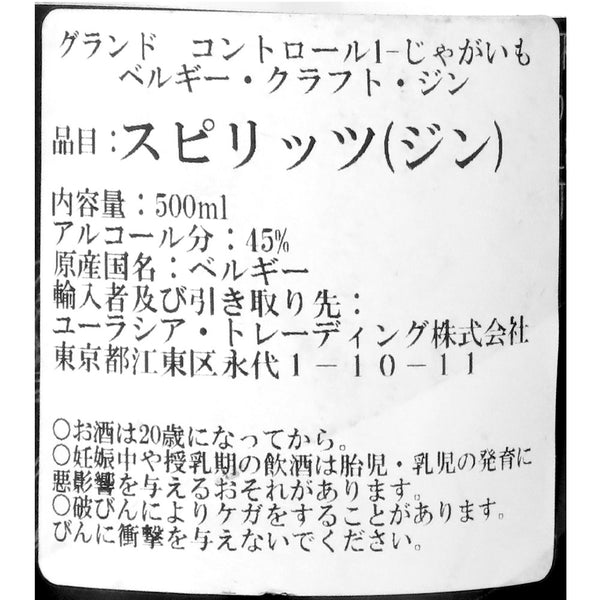 グランド コントロール1-じゃがいも
ベルギー・クラフト・ジン
品目：スピリッツ(ジン)
内容量：500ml
アルコール分：45%
原産国名：ベルギー
輸入者及び引き取り先：
ユーラシア・トレーディング株式会社
東京都江東区永代1－10－11
○お酒は20歳になってから。
○妊娠中や授乳期の飲酒は胎児・乳児の発育に
悪影響を与えるおそれがあります。
○破びんによりケガをすることがあります。
びんに衝撃を与えないでください。